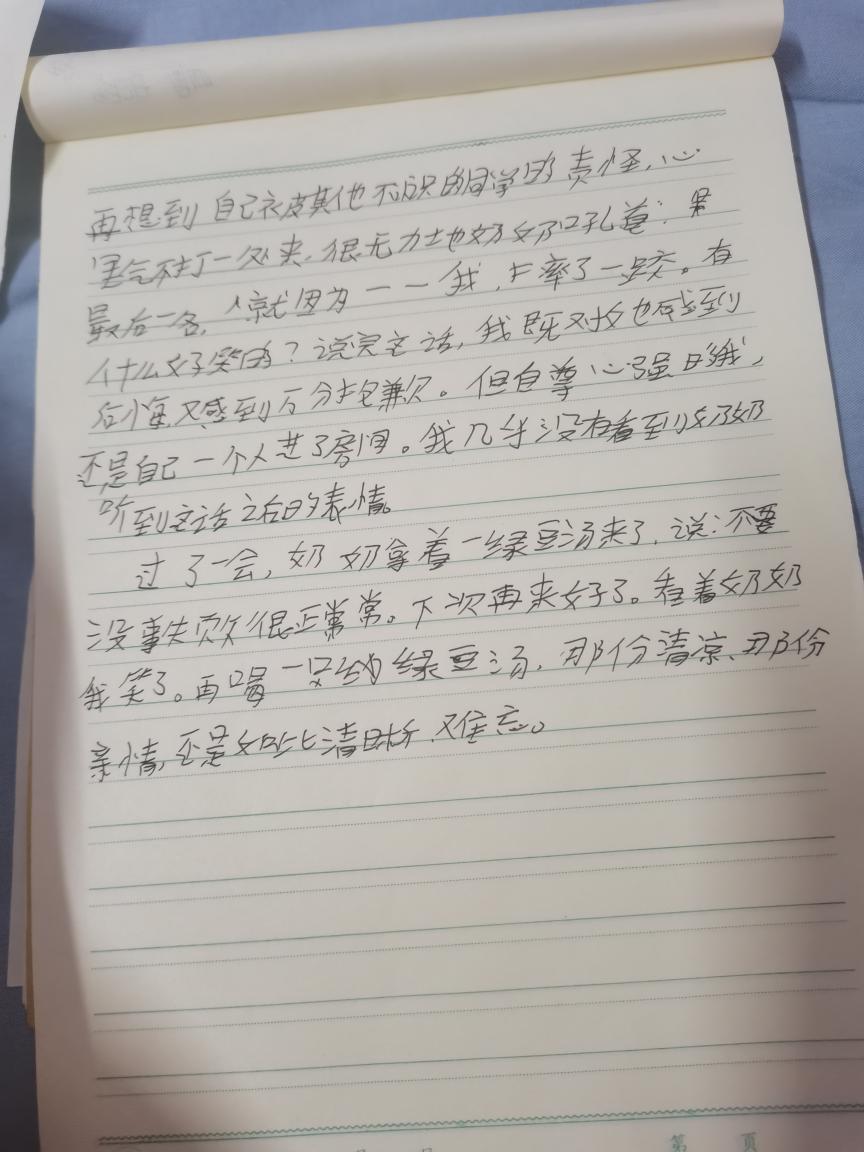 再想到自己被其他不服的同学的责怪，心
里气不打一处来，很无力土也奶奶吼道：是
最后一名，就因为一一我，摔了一跤。有
什么好笑的？说完这话，我既对感到
后悔又感到万分抱歉。但自尊心强的我，
还是自己一个人进了房间。我几乎没有看到奶奶
听到这话之后的表情。
过了一会，奶奶拿着一绿豆汤来了，说：不要
没事失败很正常常。下次再来好了。看着奶奶
我笑了。再喝一口绿豆汤，那份清凉、那份
亲情，还是如此清晰，又难忘。
第 页